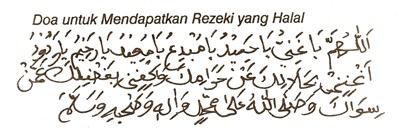 Doa untuk Mendapatkan Rezeki yang Halal
اَللّٰهُمَّ يَا غَنِيُّ يَا حَمِيْدُ يَا مُبْدِئُ يَا مُعِيْدُ يَا رَحِيْمُ يَا وَدُوْدُ
اَغْنِنِيْ بِحَلَالِكَ عَنْ حَرَامِكَ وَاكْفِنِيْ بِفَضْلِكَ عَمَّنْ
سِوَاكَ وَصَلَّى اللهُ عَلَى مُحَمَّدٍ وَاٰلِهِ وَصَحْبِهِ وَسَلَّمَ